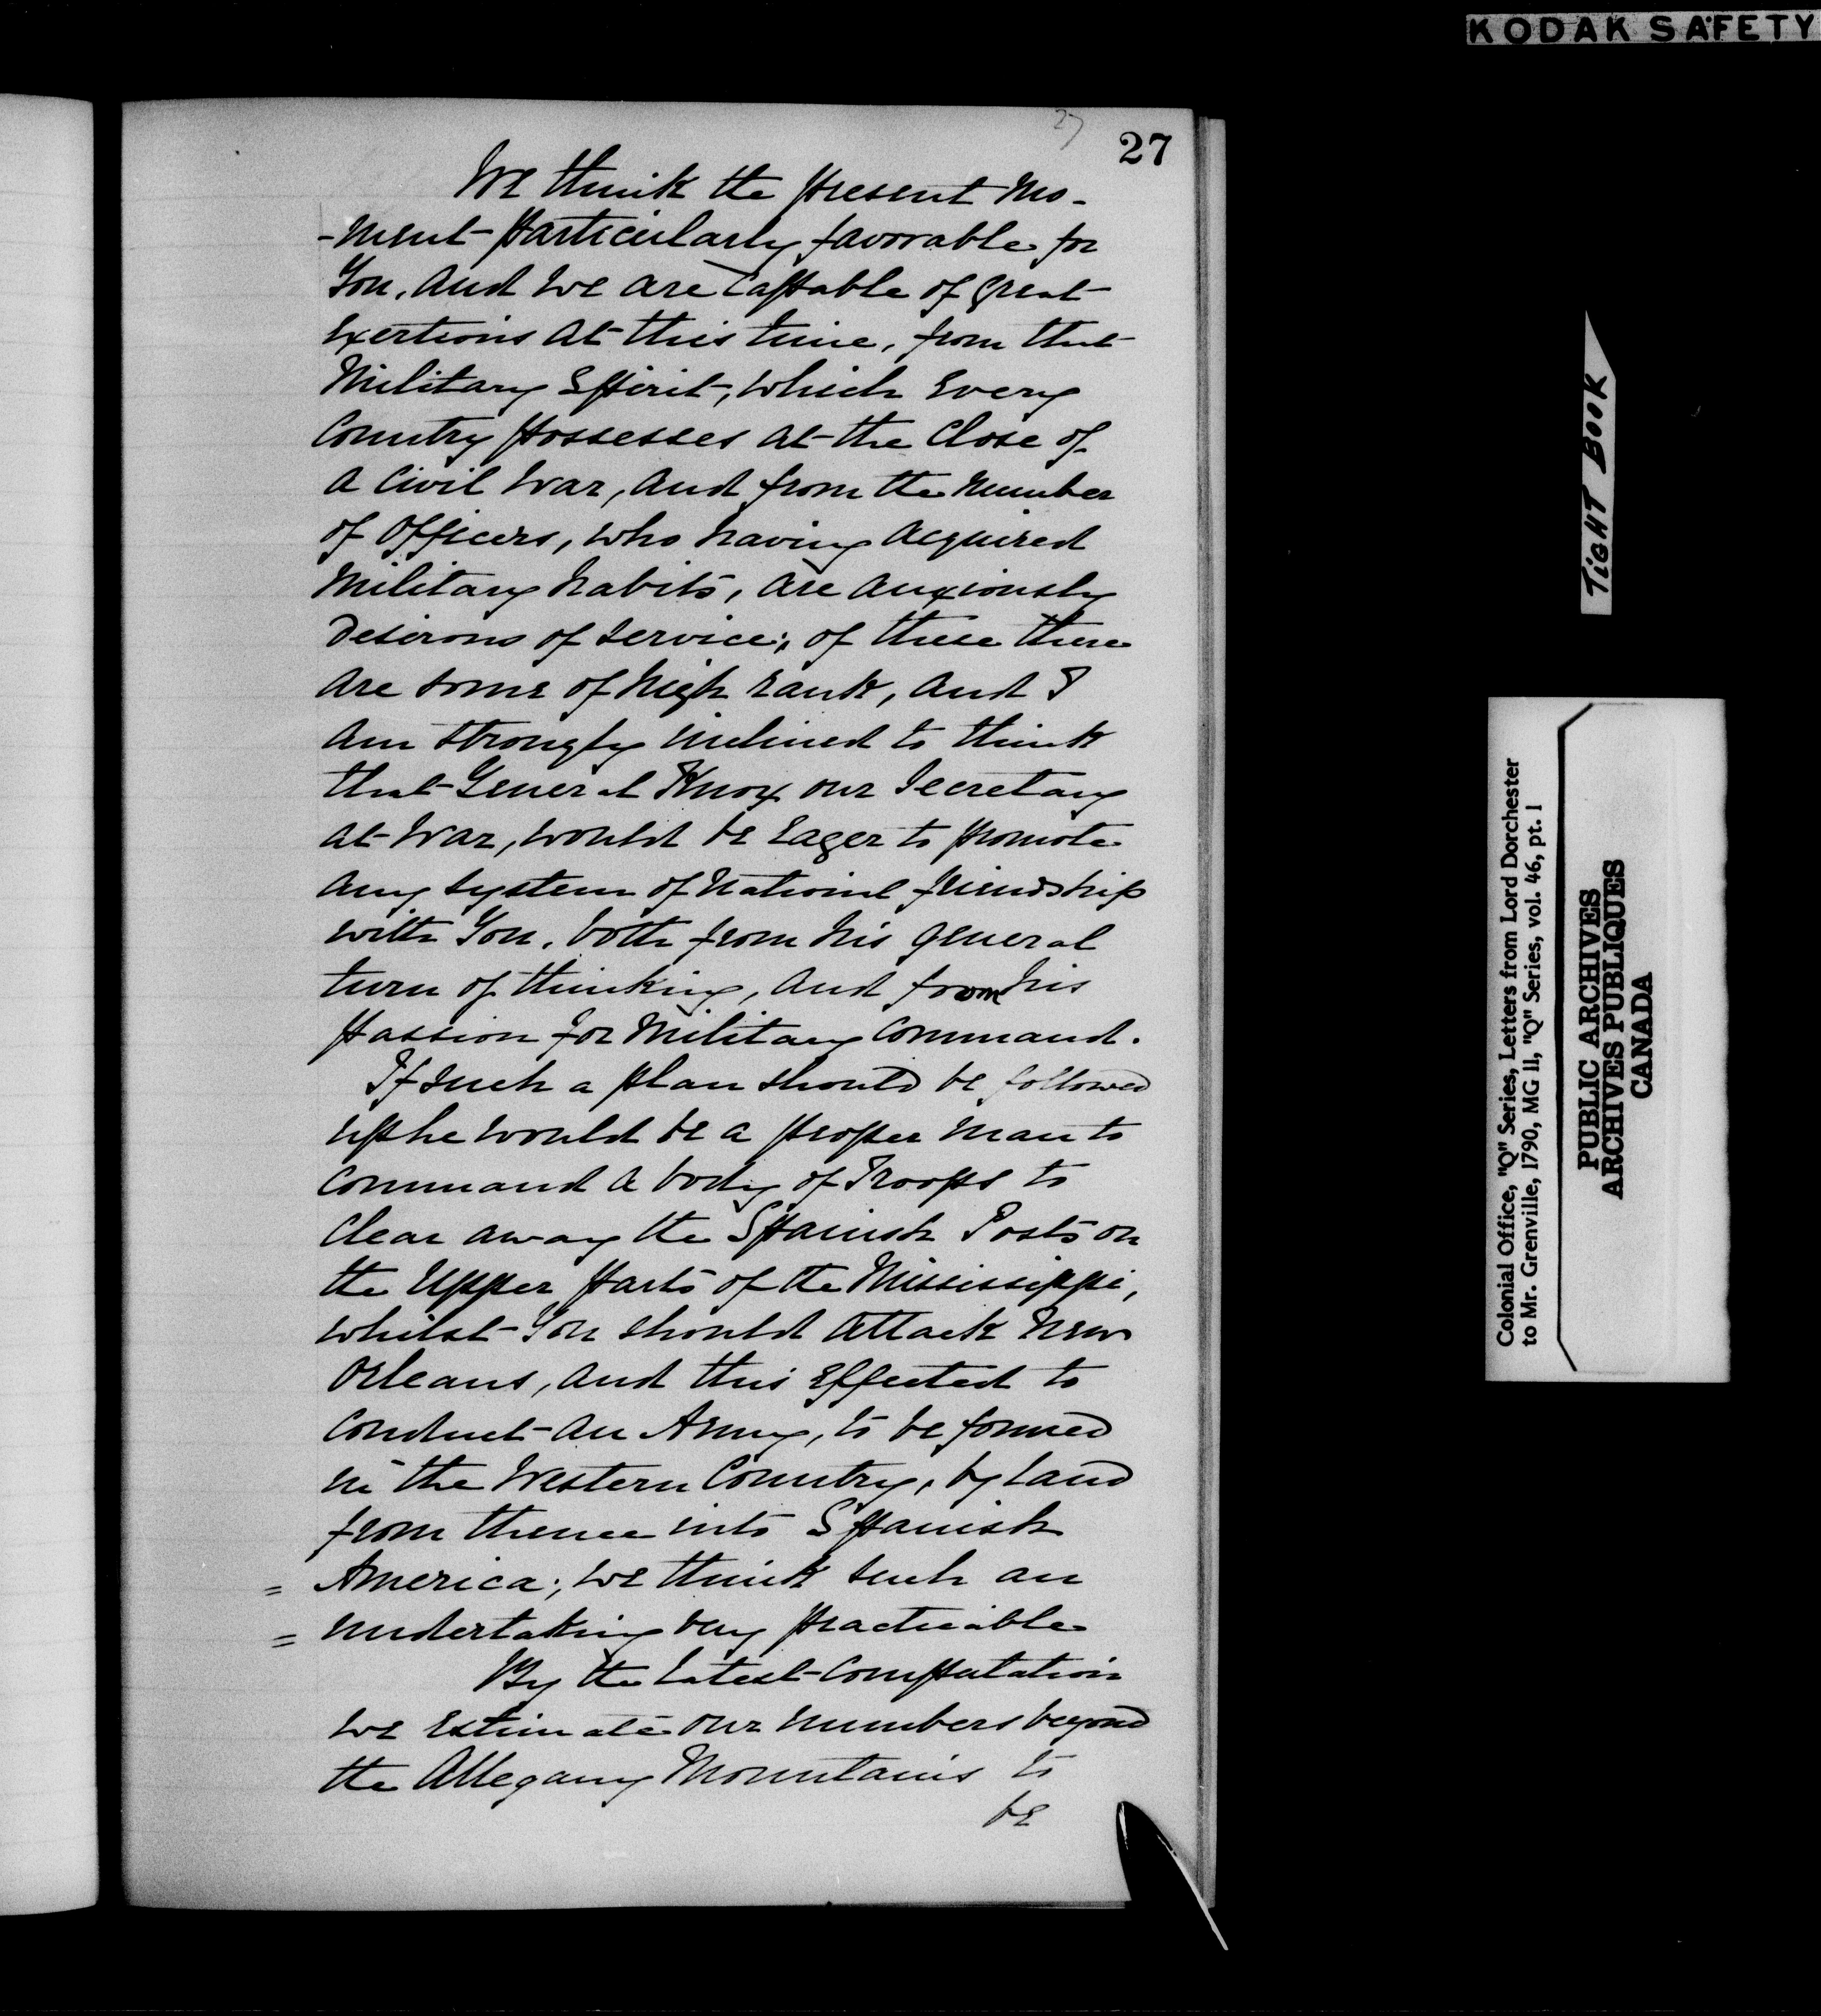 KODAK SAFETY
27
27
We think the present mo-
-ment particularly favorable for
You, and we are capable of great
exertions at this time, from that
Military Spirit, which every
Country possesses at the close of
a Civil War, and from the number
of Officers, who having acquired
Military habits, are anxiously
desirous of service; of these there
are some of high rank, and I
am strongly inclined to think
that General Knox our Secretary
at War, would be eager to promote
any system of National friendship
with You, both from his general
turn of thinking, and from his
passion for Military Command.
If such a plan should be followed
up he would be a proper man to
Command a body of Troops to
Clear away the Spanish Posts on
the Upper parts of the Mississippi,
whilst You should attack New
Orleans, and this effected to
Conduct an Army, to be formed
in the Western Country, by Land
from thence into Spanish
= America; we think such an
= undertaking very practicable
By the latest Computation
we estimate our numbers beyond
the Allegany Mountains to
be
TIGHT BOOK
Colonial Office, "Q" Series, Letters from Lord Dorchester
to Mr. Grenville, 1790, MG 11, "Q" Series, vol. 46, pt. 1
PUBLIC ARCHIVES
ARCHIVES PUBLIQUES
CANADA